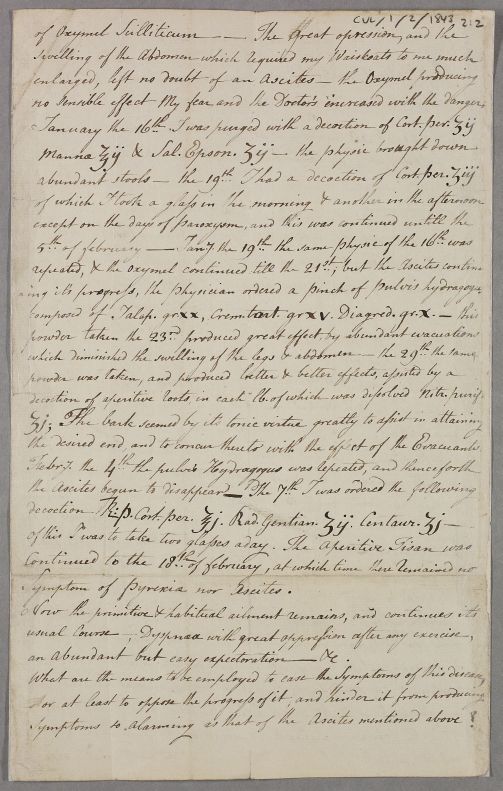 CUL/1/2/1843 212
of Oxymel Scilliticum — — The Great opression, and the
Swelling of the Abdomen which required my Waiskoats to me much
enlarged, left no doubt of an Ascites — the Oxymel producing
no sensible effect My fear and the Doctor's increased with the danger.
January the 16th I was purged with a decoction of Cort. per. ʒij
Manna ℥ij & Sal. Epson. ʒij — the physic brought down
abundant stools — the 19th I had a decoction of Cort per. ʒiij
of which I took a glass in the morning & another in the afternoon
except on the days of paroxysm, and this was continued untill the
5th of february — Jany. the 19th the same physic of the 16th was
repeated, & the oxymel continued till the 21st, but the Ascites contin
uing its progress, the physician ordered a pinch of pulvis hydragogu
composed of Jalap. grxx, Cremtart grxv. Diagred. gr.x. — this
powder taken the 23rd produced great effect by abundant evacuations
which diminished the swelling of the legs & abdomen — the 29th the same
powder was taken, and produced better & better effects, assisted by a
decoction of aperitive roots in each lb. of which was disolved Nitr. purif.
ʒj; The bark seemed by its tonic virtue greatly to assist in attaining
the desired end and to concur thereto with the effect of the Evacuants
Febry. the 4th the pulvis Hydragogus was repeated, and thenceforth
the Ascites begun to disappear — The 7th I was ordered the following
decoction Cort. per. ℥j. Rad Gentian. ʒij. Centaur. ʒj —
of this I was to take two glasses a day. The Aperitive Tisan was
Continued to the 18th of february, at which time there remained no
Symptom of Pyrexia nor Ascites.
Now the primitive & habitual ailment remains, and continues its
usual Course — Dyspnœa with great oppression after any exercise,
an abundant but easy expectoration — &c.
What are the means to be employed to ease the Symptoms of this disease,
or at least to oppose the progress of it, and hinder it from producing
Symptoms so alarming as that of the Ascites mentioned above?